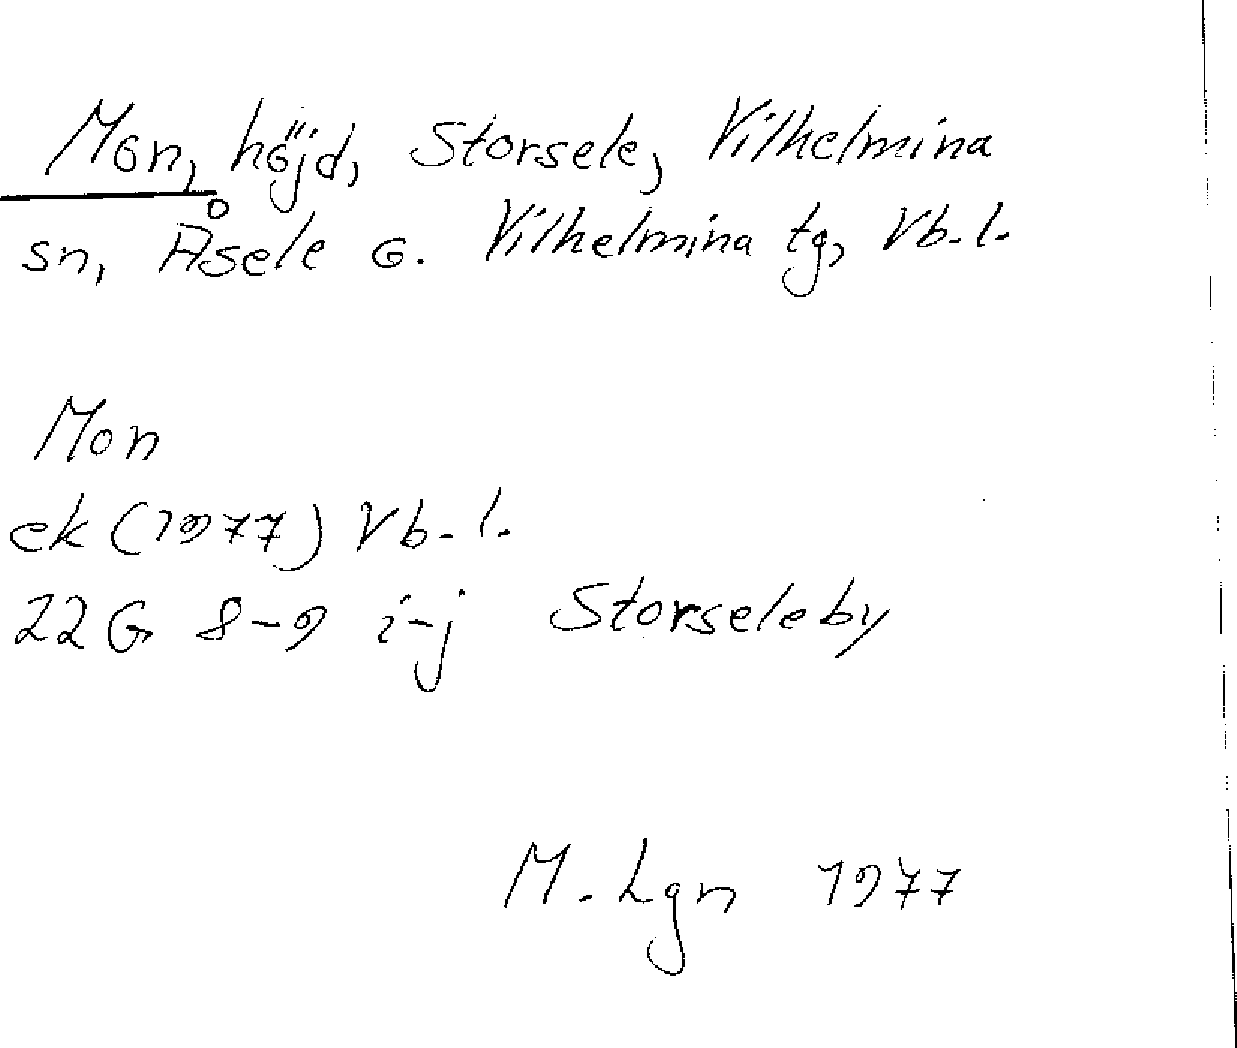 Mon, höjd, Storsele, Vilhelmina
sn, Åsele o. Vilhelmina tg, Vb. l.
Mon
ek (1977) Vb. l.
22 G 8-9 i-j Storseleby
M. Lgn 1977